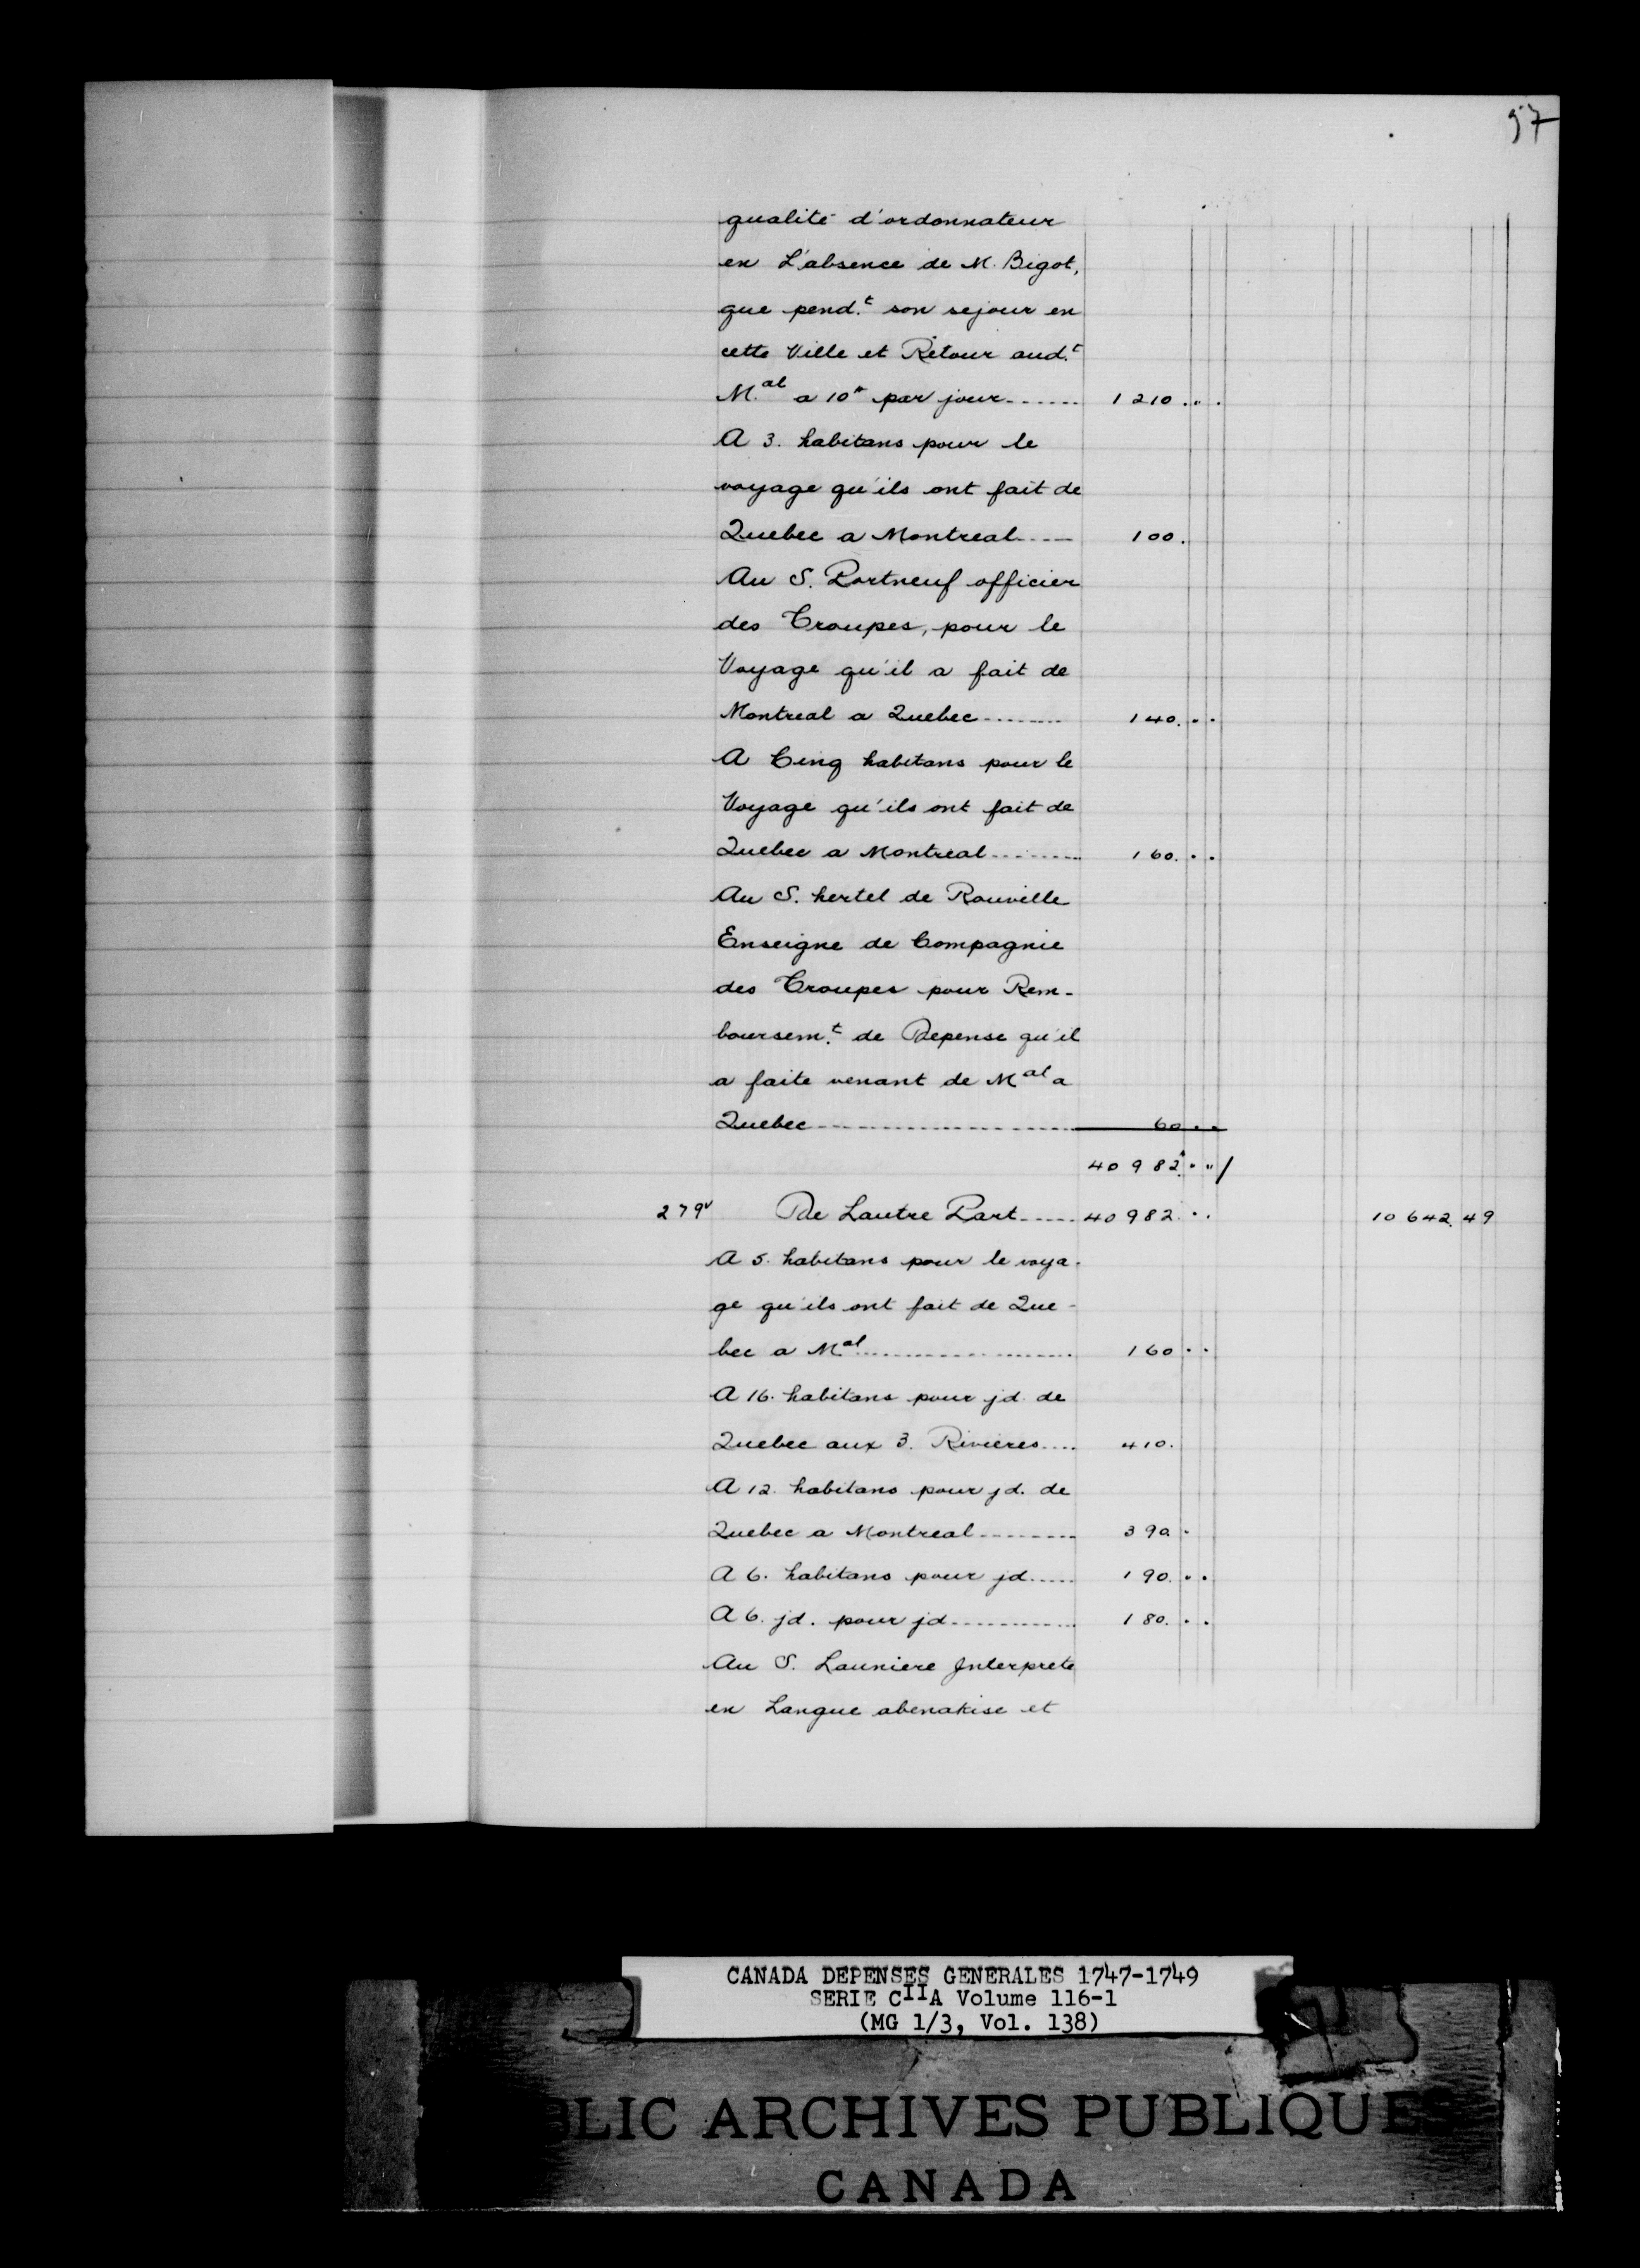 97
qualité d'ordonnateur
en L'absence de M. Bigot,
que pend.t son sejour en
cette Ville et Retour aud.t
M.al a 10# par jour...... 1210...
A 3. habitans pour le
voyage qu'ils ont fait de
Quebec a Montreal.... 100.
Au S. Portneuf officier
des Troupes, pour le
Voyage qu'il a fait de
Montreal a Quebec........ 140...
A Cinq habitans pour le
Voyage qu'ils ont fait de
Quebec a Montreal........ 160...
Au S. hertel de Rouville
Enseigne de Compagnie
des Troupes pour Rem-
boursem.t de Depense qu'il
a faite venant de Mal a
Quebec........................ 60...
40982.."/
279v De Lautre Part..... 40982... 10642.49
A 5. habitans pour le voya-
ge qu'ils ont fait de Que-
bec a Mal..................... 160..
A 16. habitans pour jd. de
Quebec aux 3. Rivieres.... 410.
A 12. habitans pour jd. de
Quebec a Montreal......... 390.
A 6. habitans pour jd..... 190...
A 6. jd. pour jd............. 180...
Au S. Launiere Interprete
en Langue abenakise et
CANADA DEPENSES GENERALES 1747-1749
SERIE CIIA Volume 116-1
(MG 1/3, Vol. 138)
BLIC ARCHIVES PUBLIQUES
CANADA